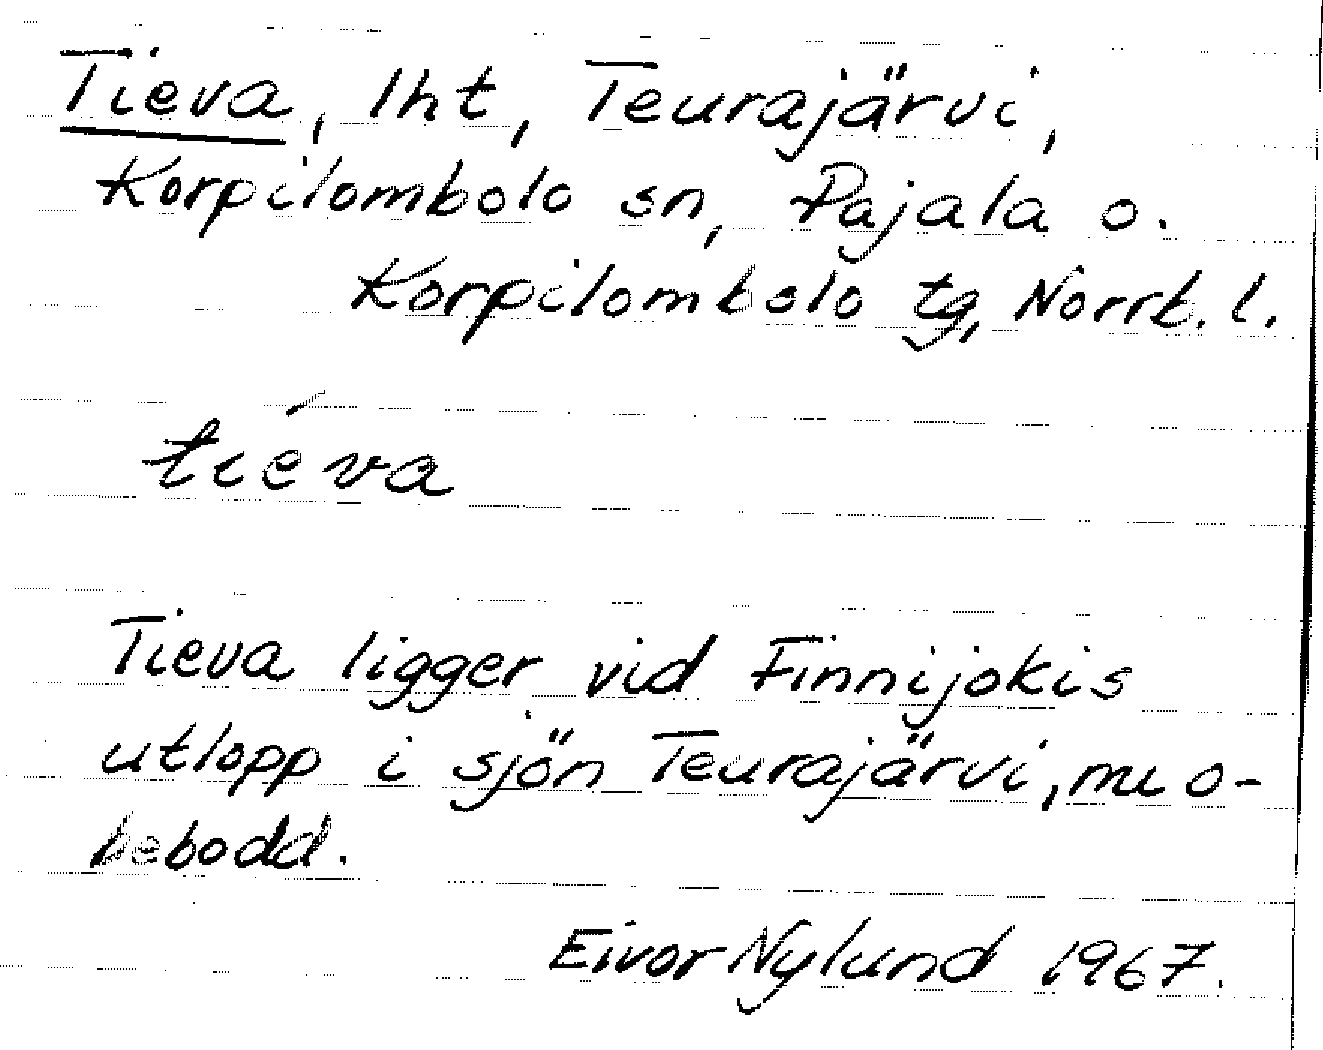 Tieva, lht, Teurajärvi,
Korpilombolo sn, Pajala o.
Korpilombolo tg, Norrb. l.
tiéva
Tieva ligger vid Finnijokis
utlopp i sjön Teurajärvi, nu o-
bebodd.
Eivor Nylund 1967.